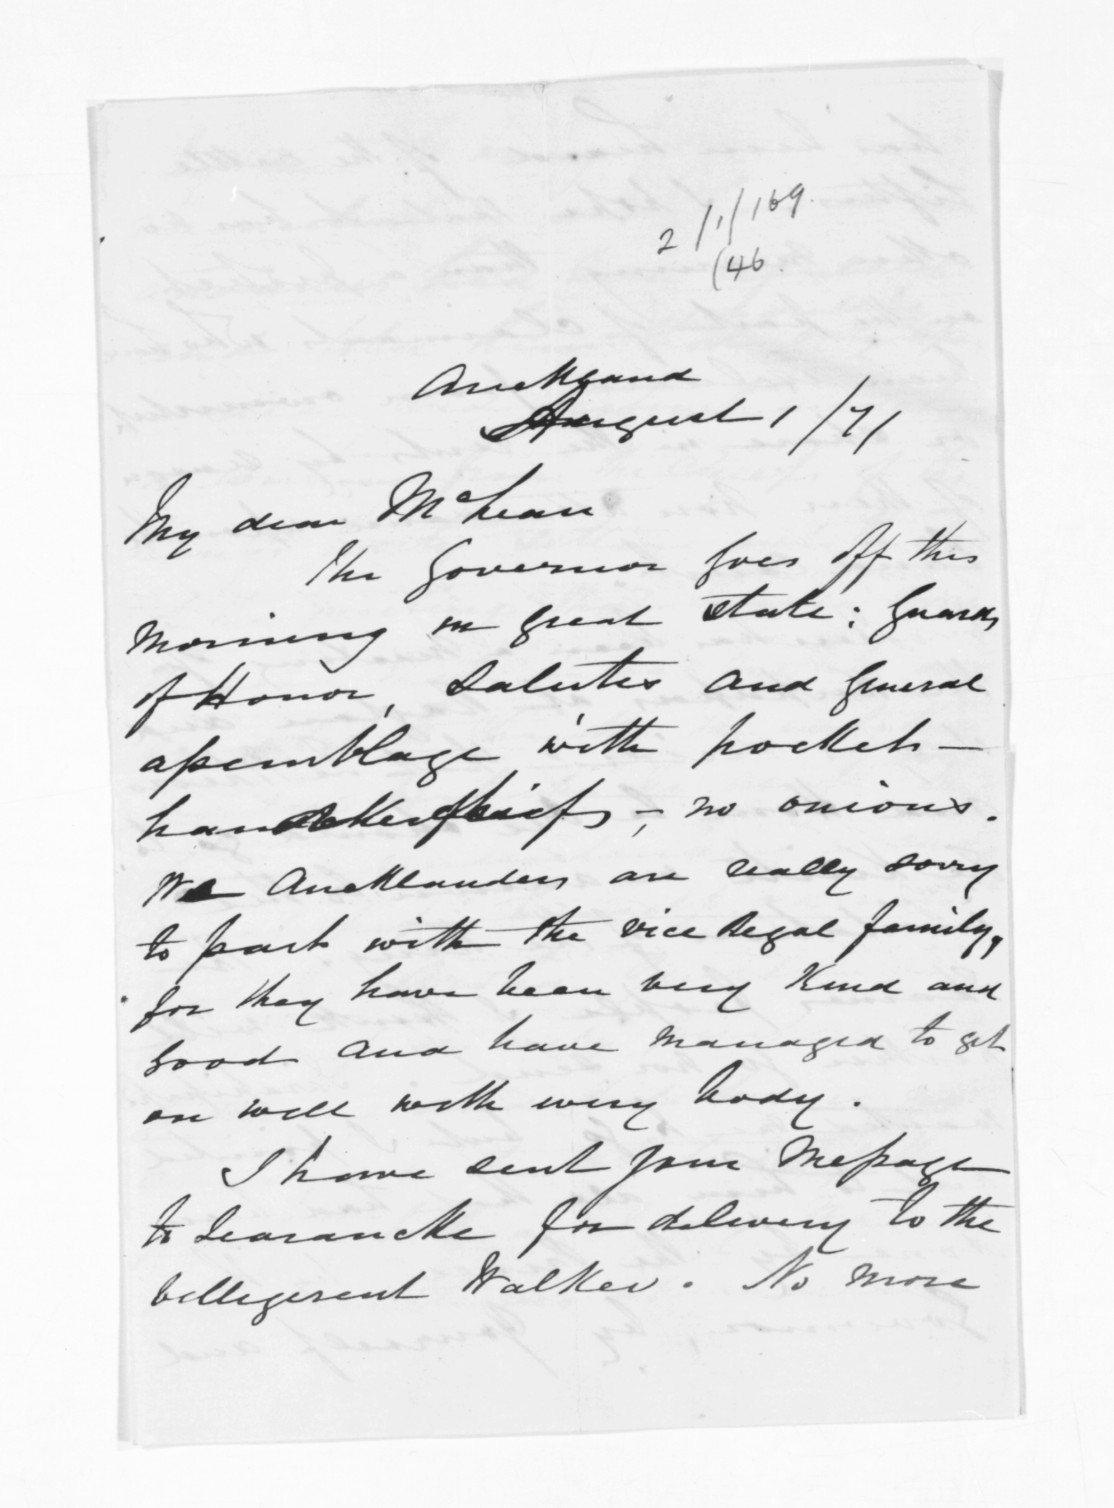 2/1/169
(46
Auckland
August 1/71
My dear McLean
The Governor goes off this
morning in great state: Guards
of Honor, salutes and general
assemblage with pocket-
handkerchiefs -, no onions.
We Aucklanders are really sorry
to part with the vice Regal family,
for they have been very kind and
good and have managed to get
on well with every body.
I have sent your message
to Searancke for delivery to the
belligerent Walker. No more